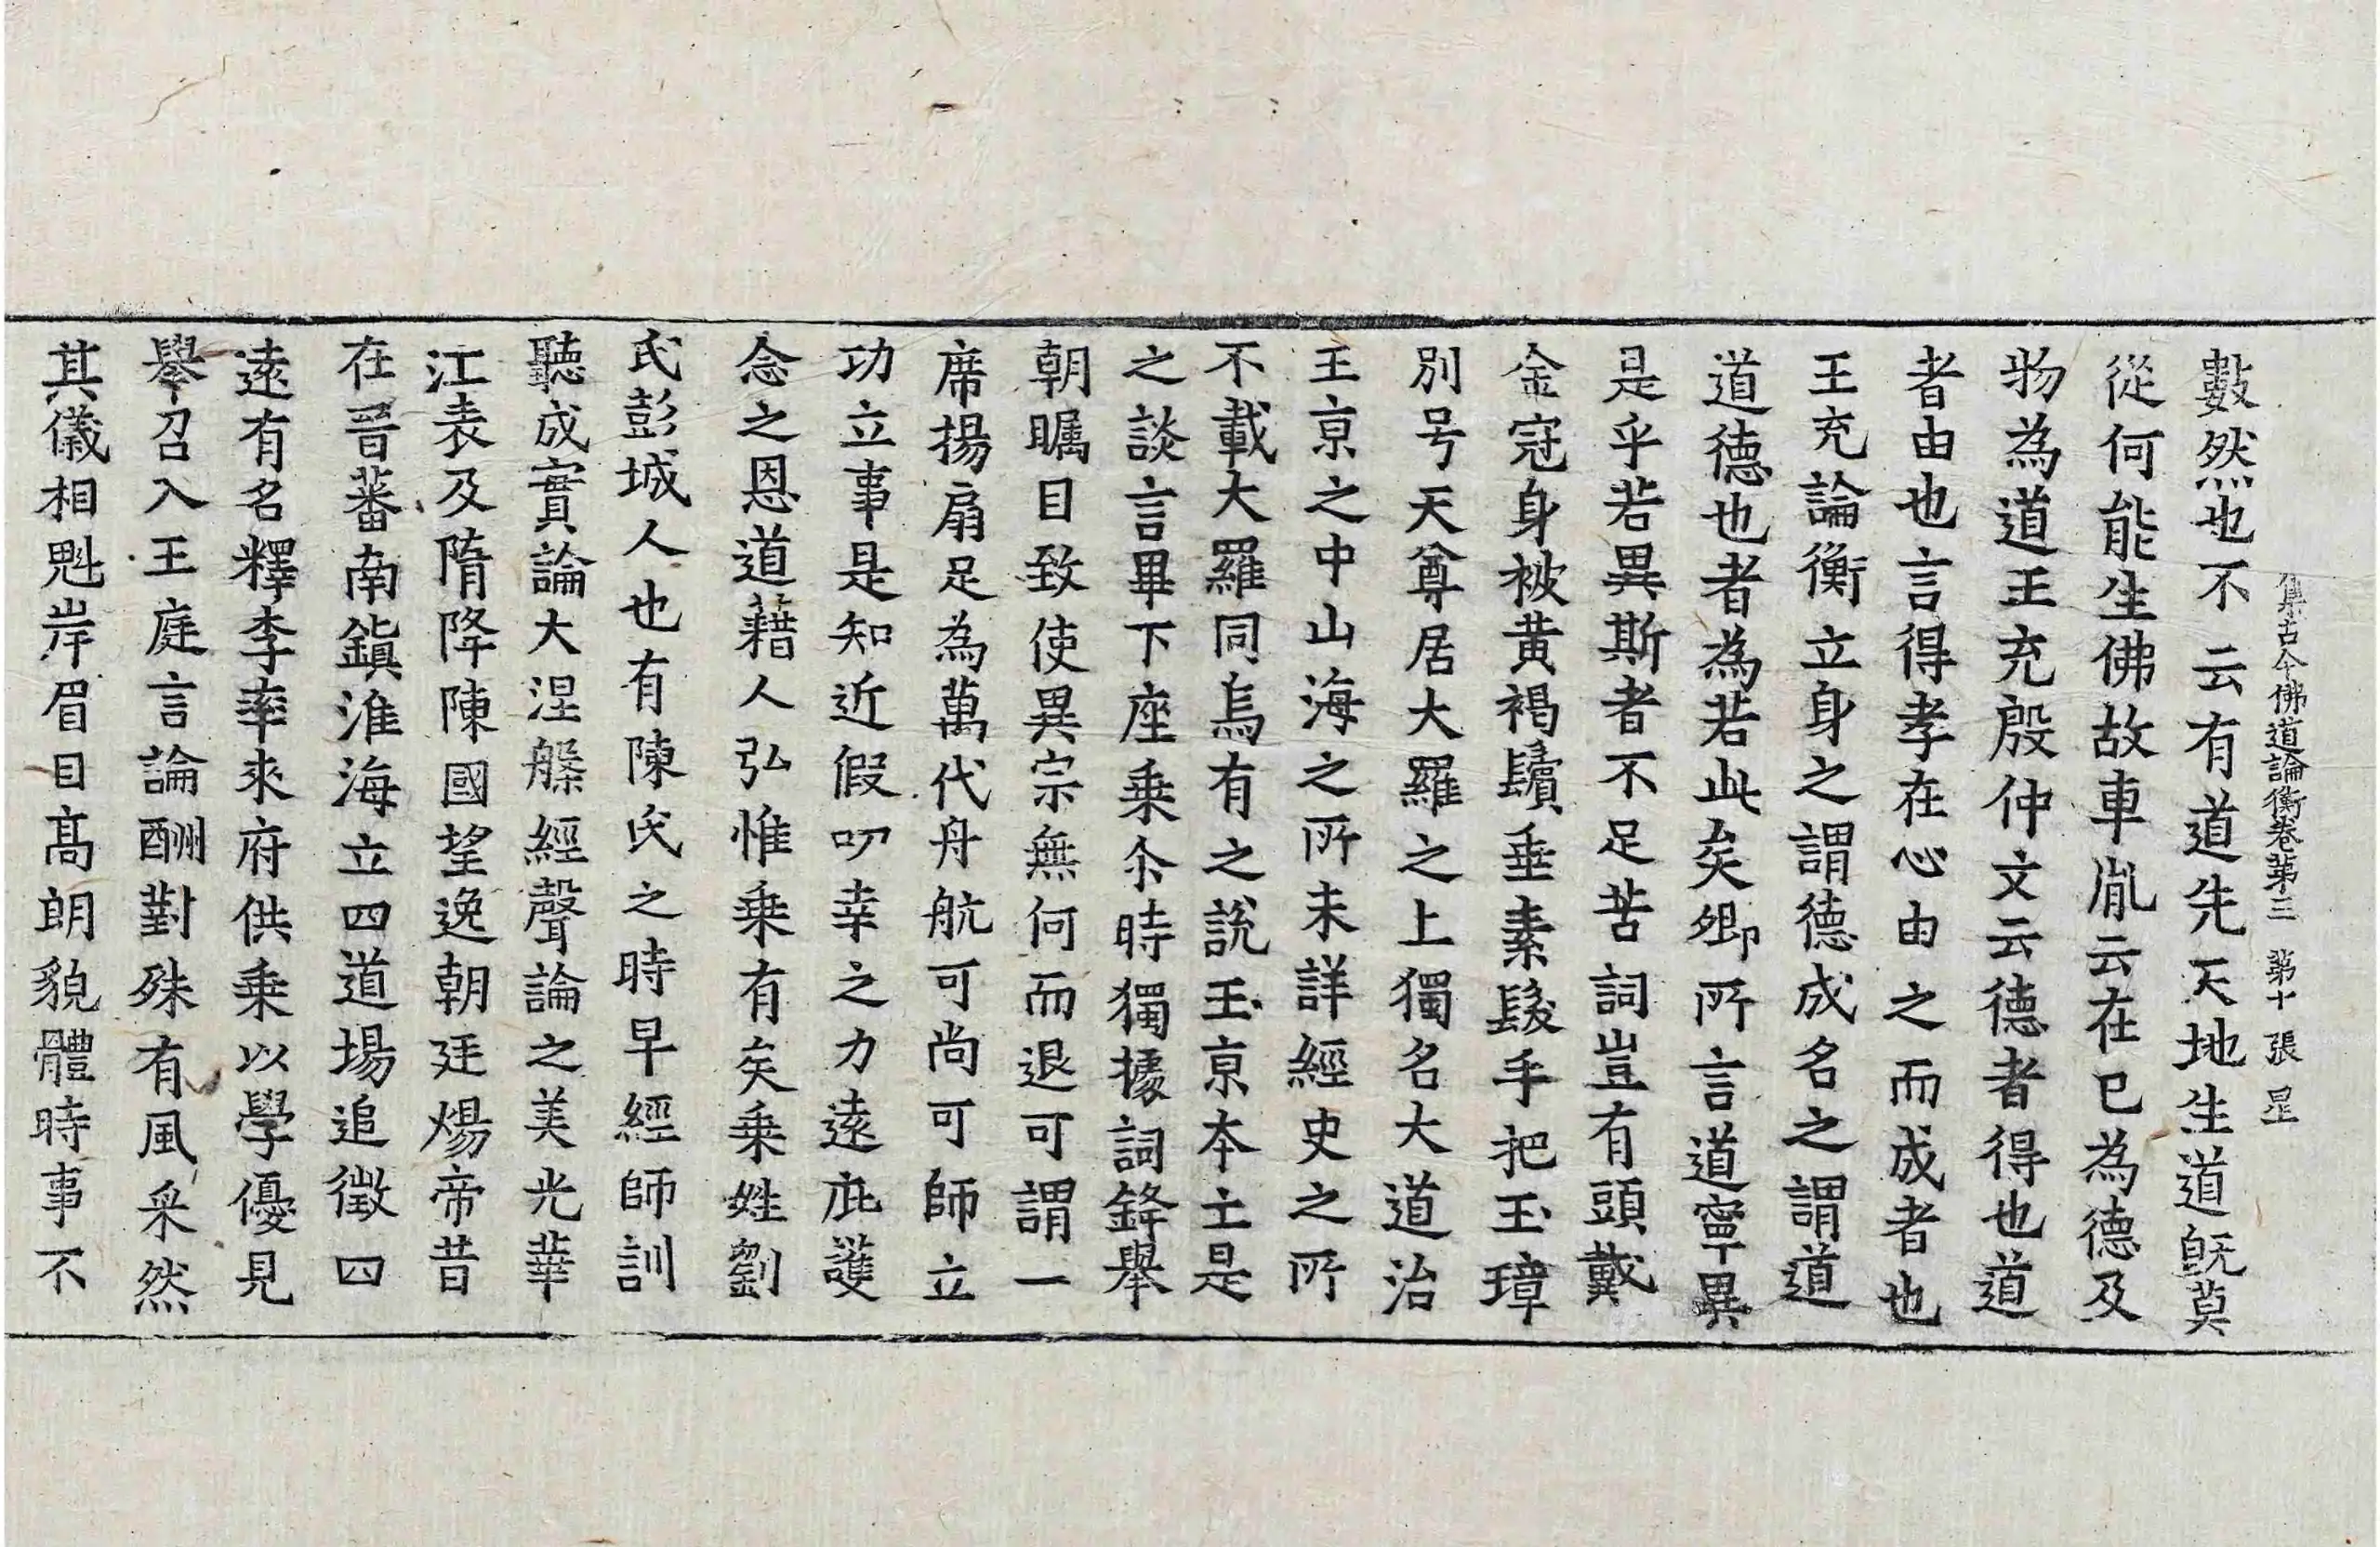 集古今佛道論衡卷第三 第十 張 星
數然也不云有道先天地生道既莫
從何能生佛故車胤云在已為德及
物為道王充殷仲文云德者得也道
者由也言得孝在心由之而成者也
王充論衡立身之謂德成名之謂道
道德也者為若此矣卿所言道寧異
是乎若異斯者不足苦詞豈有頭戴
金冠身被黃褐鬚垂素髮手把玉璋
別号天尊居大羅之上獨名大道治
王京之中山海之所未詳經史之所
不載大羅同烏有之說玉京本土是
之談言畢下座乘尒時獨據詞鋒舉
朝矚目致使異宗無何而退可謂一
席揚扇足為萬代舟航可尚可師立
功立事是知近假叨幸之力遠庇護
念之恩道藉人弘惟乘有矣乘姓劉
氏彭城人也有陳氏之時早經師訓
聽成實論大涅槃經聲論之美光華
江表及隋降陳國望逸朝廷煬帝昔
在晉蕃南鎮淮海立四道場追徵四
遠有名釋李率來府供乘以學優見
舉召入王庭言論酬對殊有風采然
其儀相魁岸眉目高朗貌體時事不